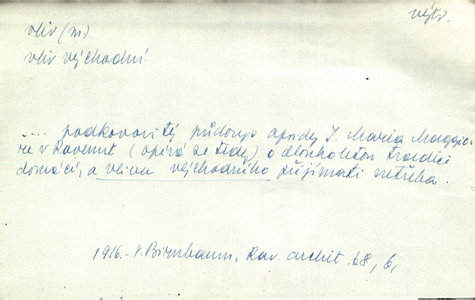 výtv.
vliv (m.)
vliv východní
.... podkovovitý půdorys apsidy S. Maria Maggio-
re v Ravenně (opírá se tedy) o dlouholetou tradici
domácí, a vlivu východního přijímati netřeba.
1916 - V. Birnbaum, Rav. archit. 68, 6,